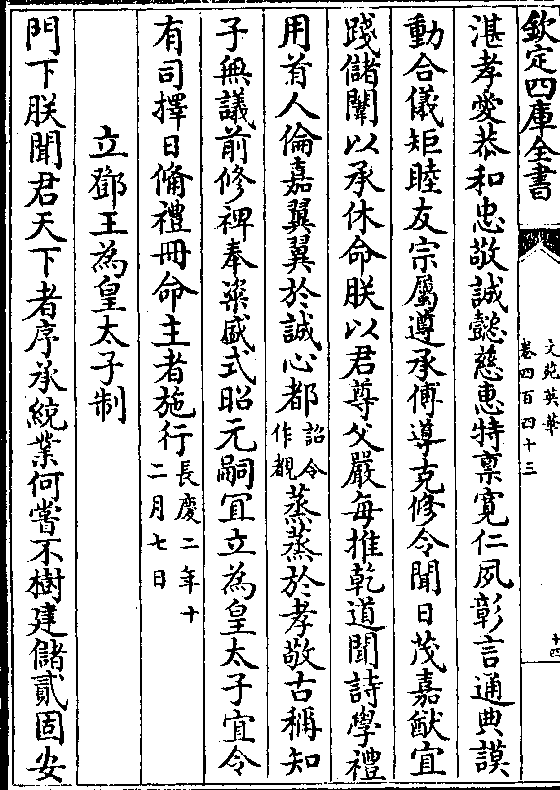 欽定四庫全書
文苑英華
卷四百四十三
十四
湛孝愛恭和忠敬誠懿慈惠特稟寛仁夙彰言通典謨
動合儀矩睦友宗屬遵承傅導克修令聞日茂嘉猷宜
踐儲闈以承休命朕以君尊父嚴每推乾道聞詩學禮
用首人倫嘉翼翼於誠心都詔令作覩蒸蒸於孝敬古稱知
子無議前修禆奉粢盛式昭元嗣宜立為皇太子宜令
有司擇日備禮冊命主者施行長慶二年十二月七日
立鄧王為皇太子制
門下朕聞君天下者序承統業何嘗不樹建儲貳固安